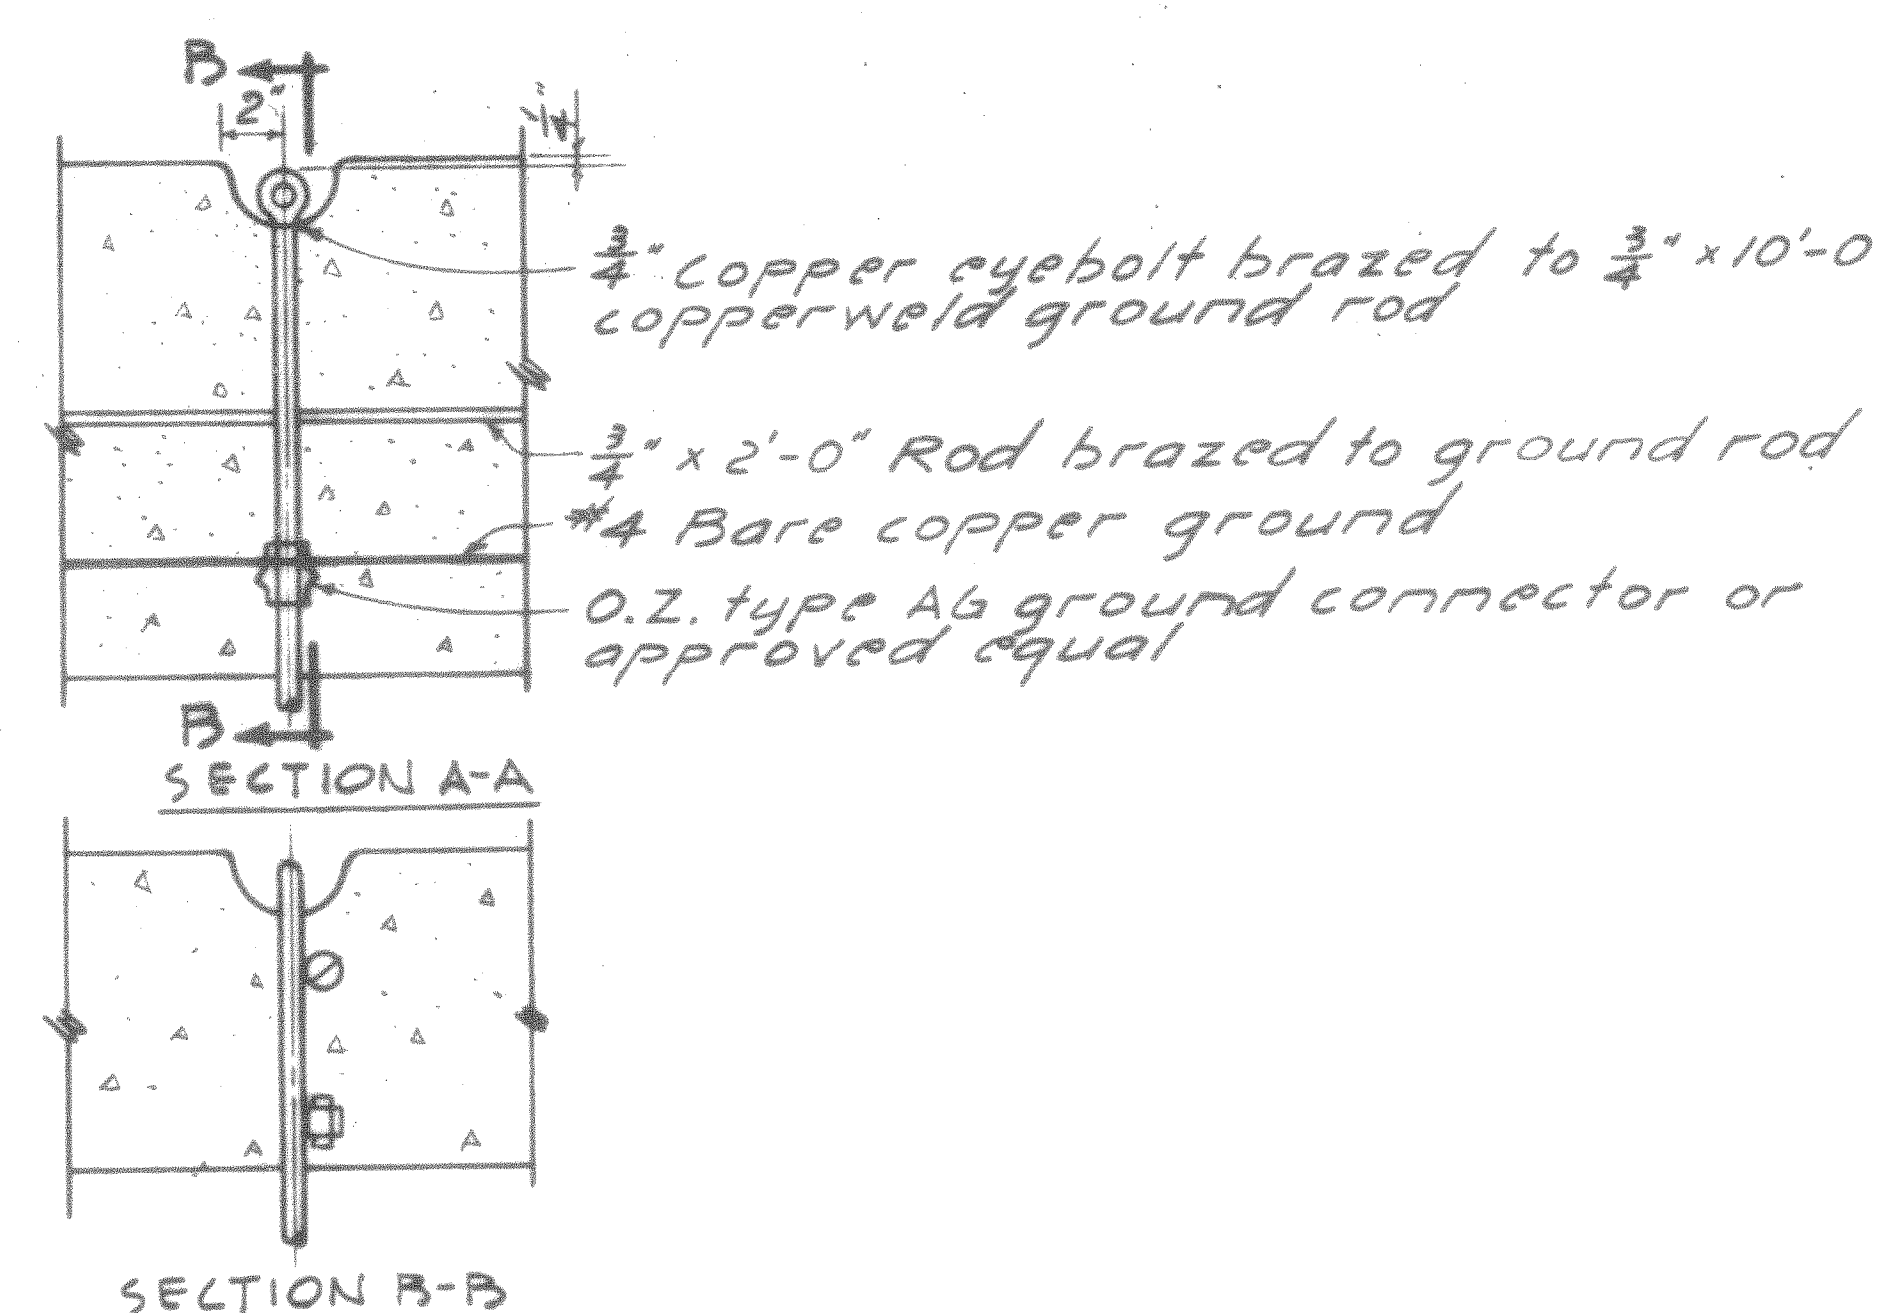 B
2"
1/4"
3/4" Copper eyebolt brazed to 3/4" x 10'-0
copperweld ground rod
3/4" x 2'-0" Rod brazed to ground rod
#4 Bare copper ground
O.Z. type AG ground connector or
approved equal
B
SECTION A-A
SECTION B-B